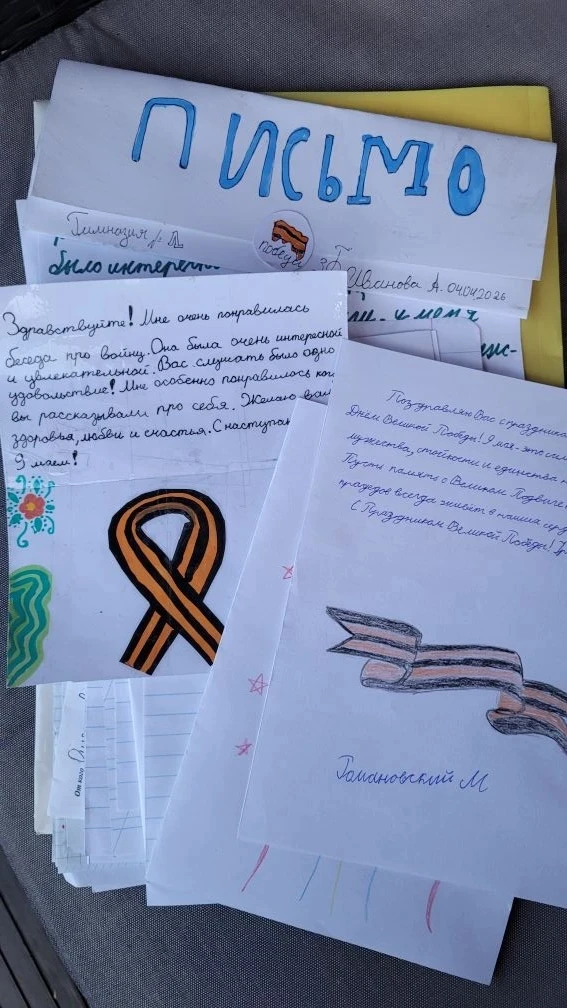 ПИСЬМО
Гимназия №1
победы
3Б Иванова А. 04.04.2026
было интересно
и меня
Здравствуйте! Мне очень понравилась
беседа про войну. Она была очень интересной
и увлекательной. Вас слушать было одно
удовольствие! Мне особенно понравилось ког
вы рассказывали про себя. Желаю вам
здоровья, любви и счастья. С наступа
9 маем!
Поздравляю Вас с праздника
Днём Великой Победы! 9 мая - это
мужества, стойкости и единства
Пусть память о Великом Подвиге
прадедов всегда живёт в наших
С Праздником Великой Победы!
От кого
Романовский М